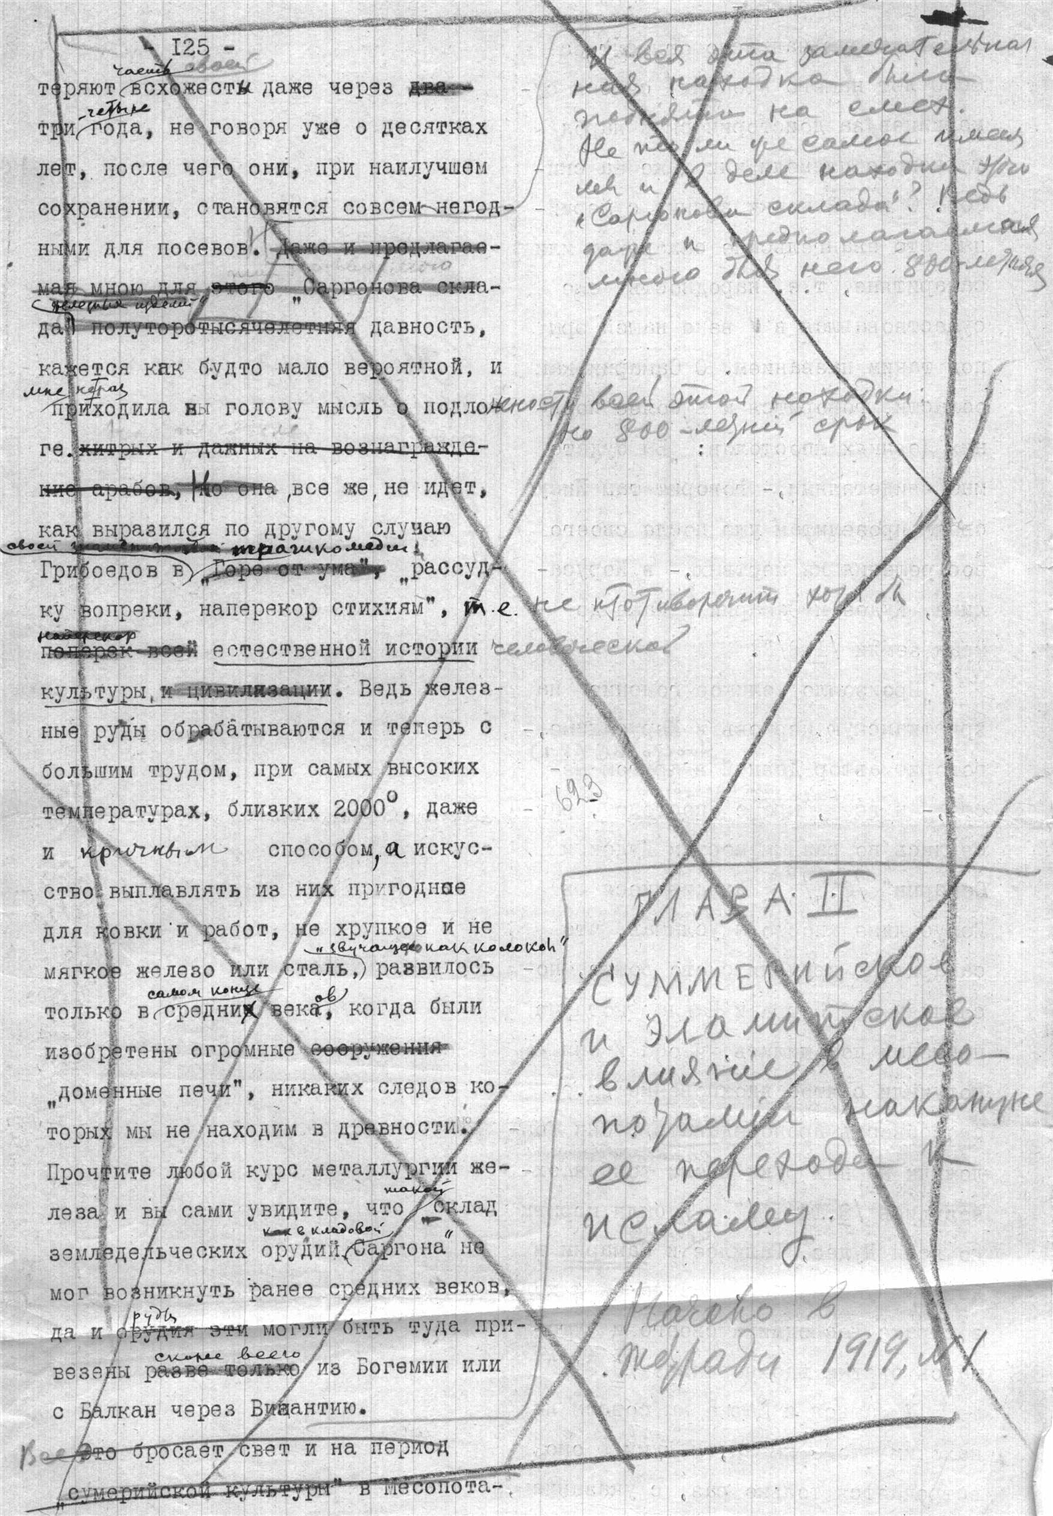 - 125 -
часть своей
теряют всхожести даже через два
четыре
три года, не говоря уже о десятках
лет, после чего они, при наилучшем
сохранении, становятся совсем негод-
ными для посевов. Даже и предлагае-
мая мною для этого "Саргонова скла-
да" полуторотысячелетняя давность,
кажется как будто мало вероятной, и
мне не раз
приходила вы голову мысль о подло-
ге. хитрых и дажных на вознагражде-
ние арабов, Но она, все же, не идет,
как выразился по другому случаю
своей трагикомедии
Грибоедов в "Горе от ума", "рассуд-
ку вопреки, наперекор стихиям", т.е. не противоречит хотя бы
наперекор
поперек всей естественной истории человеческой
культуры и цивилизации. Ведь желез-
ные руды обрабатываются и теперь с
большим трудом, при самых высоких
температурах, близких 2000°, даже
и кричным способом, а искус-
ство выплавлять из них пригодное
для ковки и работ, не хрупкое и не
"звучащее как колокол"
мягкое железо или сталь, развилось
самом конце
только в средних веков, когда были
изобретены огромные сооружения
"доменные печи", никаких следов ко-
торых мы не находим в древности.
Прочтите любой курс металлургии же-
такой
леза и вы сами увидите, что "склад
как в кладовой
земледельческих орудий Саргона" не
мог возникнуть ранее средних веков,
руды
да и орудия эти могли быть туда при-
скорее всего
везены разве только из Богемии или
с Балкан через Византию.
Все это бросает свет и на период
"сумерийской культуры" в Месопота-
И вся эта замечательная
находка была
поднята на смех.
Не то ли же самое имеем
мы и в деле находки этого
"Саргонова склада"? Ведь
даже и предполагаемая
мною для него 800-летняя
жности всей этой находки
но 800-летний срок
623
ГЛАВА II
СУММЕРИЙСКОЕ
и Эламитское
влияние в Месо-
потамии накануне
ее перехода к
исламу.
Начато в
тетради 1919, №1